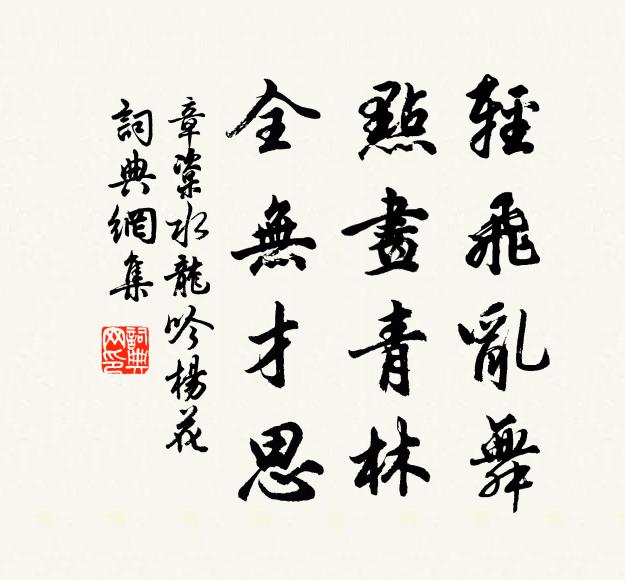 輕飛亂舞
點畫青林
全無才思
章楶水龍吟楊花
詞典網集
詞典
网印